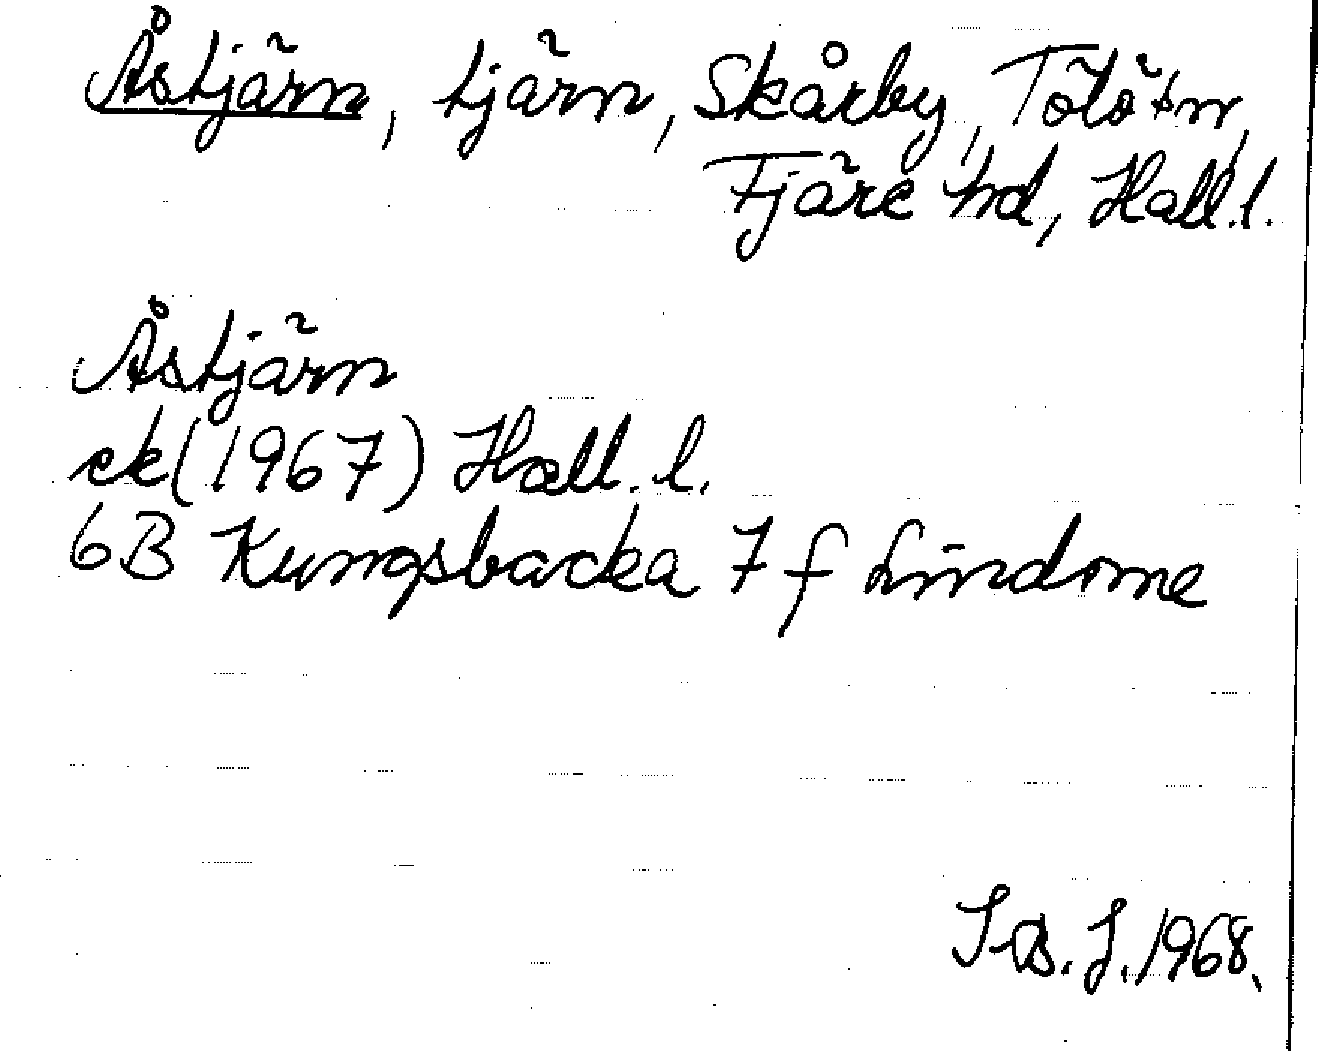 Åstjärn, tjärn, Skårby, Tölö sn,
Fjäre hd, Hall. l.
Åstjärn
ek (1967) Hall. l.
6B Kungsbacka 7 f Lindome
J. 1968.